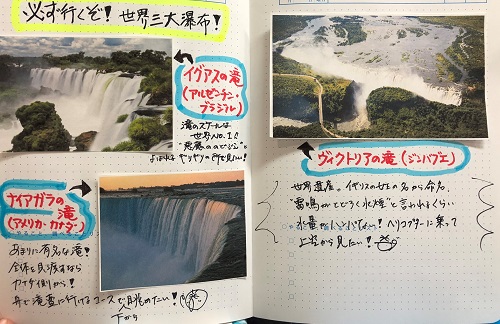 必ず行くぞ！世界三大瀑布！
イグアスの滝
（アルゼンチン・
ブラジル）
滝のスケールは
世界No.1!!
"悪魔ののどぶえ"と
よばれるギリギリの所を見たい！
ナイアガラの
滝
（アメリカ・カナダ）
あまりに有名な滝！
全体を見渡すなら
カナダ側から！
舟で滝壺に行けるコースで
下から
ヴィクトリアの滝（ジンバブエ）
世界遺産。イギリスの女王の名から命名。
"雷鳴がとどろく水煙"と言われるくらい
水量がハンパない！ヘリコプターに乗って
上空から見たい！